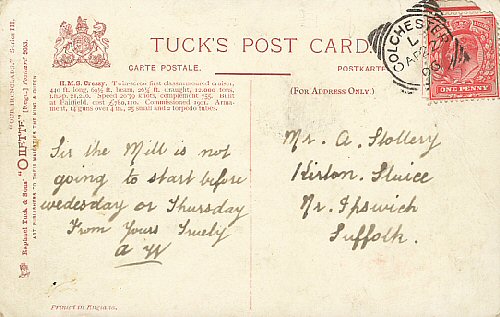 TUCK'S POST CARD
CARTE POSTALE.
POSTKARTE
(FOR ADDRESS ONLY.)
H.M.S. Cressy. Twin-screw first class armoured cruiser,
440 ft. long, 69½ ft. beam, 26½ ft. draught, 12,000 tons,
I.H.P. 21,240. Speed 20·79 knots, complement 755. Built
at Fairfield, cost £780,110. Commissioned 1901. Arma-
ment, 14 guns over 4 in., 25 small and 2 torpedo tubes.
Sir the Mill is not
going to start before
wedesday or Thursday
From Yours Truely
A W
Mr. A. Stollery
Kirton. Sluice
Nr. Ipswich
Suffolk.
COLCHESTER
AP 2
ONE PENNY
Raphael Tuck & Sons' "OILETTE" [Regd.]
ART PUBLISHERS TO THEIR MAJESTIES THE KING & QUEEN
Printed in England.